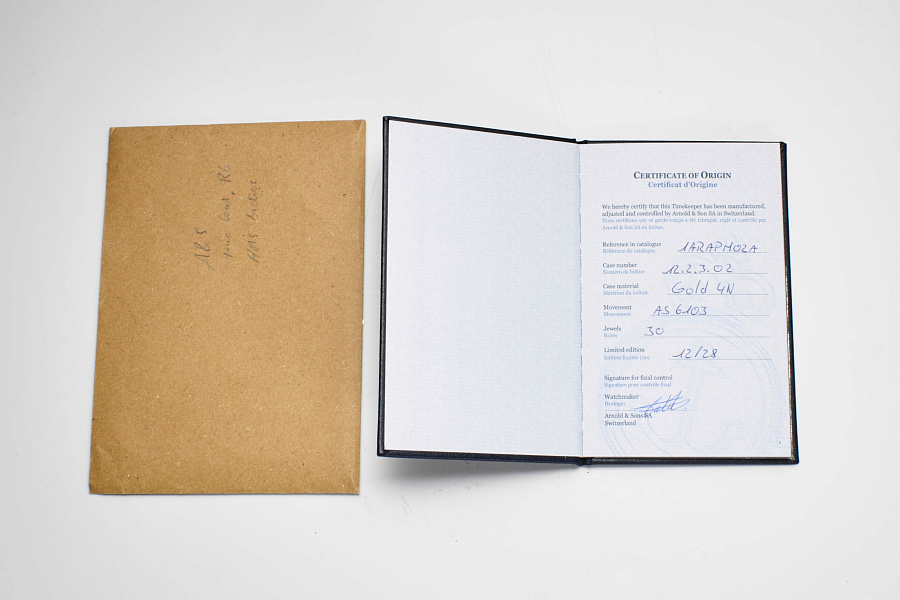 18.5
CERTIFICATE OF ORIGIN
Certificat d'Origine
We hereby certify that this Timekeeper has been manufactured,
adjusted and controlled by Arnold & Son SA in Switzerland.
Nous certifions que ce garde-temps a été fabriqué, réglé et contrôlé par
Arnold & Son SA en Suisse.
Reference in catalogue 1ARAPM02A
Référence du catalogue
Case number 12.2.3.02
Numéro de boîtier
Case material Gold 4N
Matériau du boîtier
Movement AS 6103
Mouvement
Jewels 30
Rubis
Limited edition 12/28
Edition limitée (ex)
Signature for final control
Signature pour contrôle final
Watchmaker
Horloger
Arnold & Sons SA
Switzerland
1